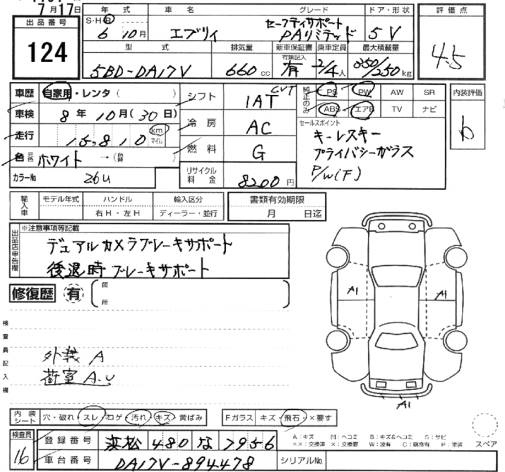 7月17日
出品番号
124
年式 車名 グレード ドア・形状
S・H・R
6年 10月 エブリィ セーフティサポート PAリミテッド 5V
型式 排気量 新車保証書 乗車定員 最大積載量
5BD-DA17V 660cc 有 2/4人 350/250kg
評価点
4.5
車歴 自家用・レンタ( )
車検 8年10月(30日)
走行 15,810 km マイル
色 ホワイト →( )
カラーNo 26U
シフト IAT CVT
冷房 AC
燃料 G
リサイクル料金 8200円
純正のみ
PS PW AW SR
ABS エアB TV ナビ
セールスポイント
キーレスキー
プライバシーガラス
P/W(F)
内装評価
b
輸入車
モデル年式 ハンドル 輸入区分
右H・左H ディーラー・並行
書類有効期限
月 日迄
出品店申告欄
※注意事項等記載
デュアルカメラブレーキサポート
後退時ブレーキサポート
修復歴 有
箇所
検査員記入欄
外装 A
荷室 A.U
A1
A1
A1
内装シート 穴・破れ スレ コゲ 汚れ キズ 黄ばみ
Fガラス キズ・飛石・×要す
スペア
検査員
16
登録番号 浜松 480 な 7956
車台番号 DA17V-894478 シリアルNo